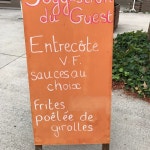 Suggestion
du Guest
Entrecôte
V.F.
sauces au
choix
frites
poêlée de
girolles